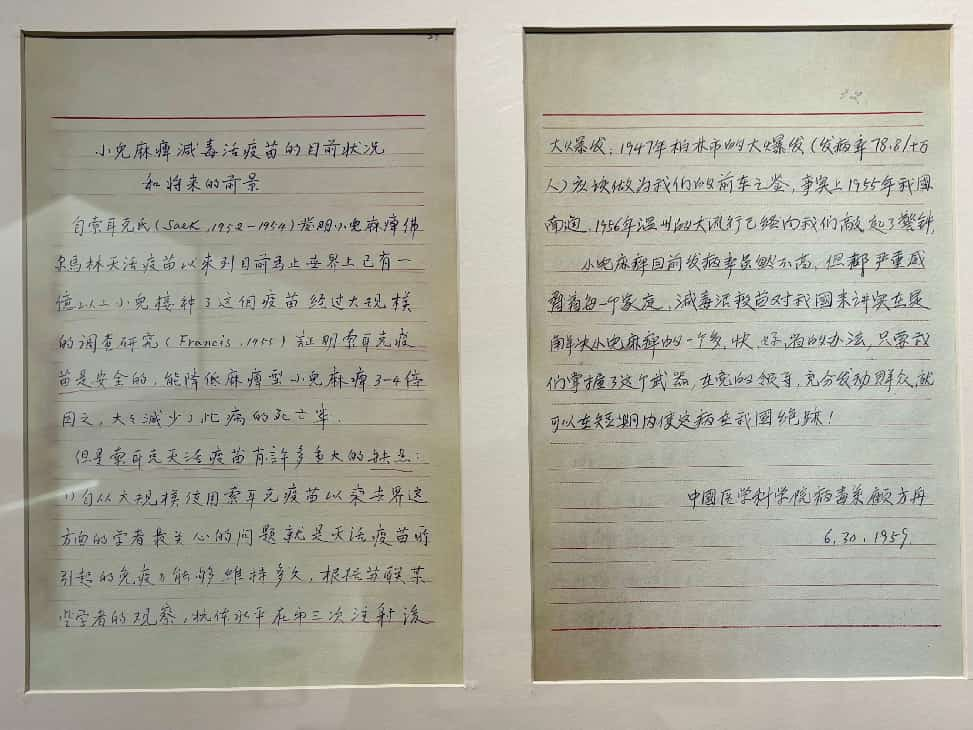 小兒麻痺減毒活疫苗的目前狀况
和将来的前景
自索耳克氏(Salk, 1952-1954)發明小兒麻痺佛
末馬林灭活疫苗以來到目前為止世界上已有一
億以上小兒接种了這個疫苗 经过大規模
的調查研究(Francis, 1955)証明索耳克疫
苗是安全的,能降低麻痺型小兒麻痺3-4倍
因之,大大減少了此病的死亡率.
但是索耳克灭活疫苗有許多重大的缺点:
1)自从大規模使用索耳克疫苗以來世界这
方面的学者最关心的问題就是灭活疫苗所
引起的免疫力能够維持多久,根据苏联某
些学者的观察,抗体水平在第三次注射後
大爆发,1947年柏林市的大爆发(发病率78.8/十万
人)应该做为我们的前车之鉴,事实上1955年我國
南通,1956年温州的大流行已经向我们敲起了警钟.
小兒麻痺目前发病率虽然不高,但都严重威
脅着每一个家庭,減毒活疫苗对我國来讲实在是
解决小兒麻痺的一个多,快,好,省的办法,只要我
们掌握了这个武器,在党的领导,充分发动群众,就
可以在短期内使这病在我國绝跡!
中國医学科学院病毒系顧方舟
6.30.1959.